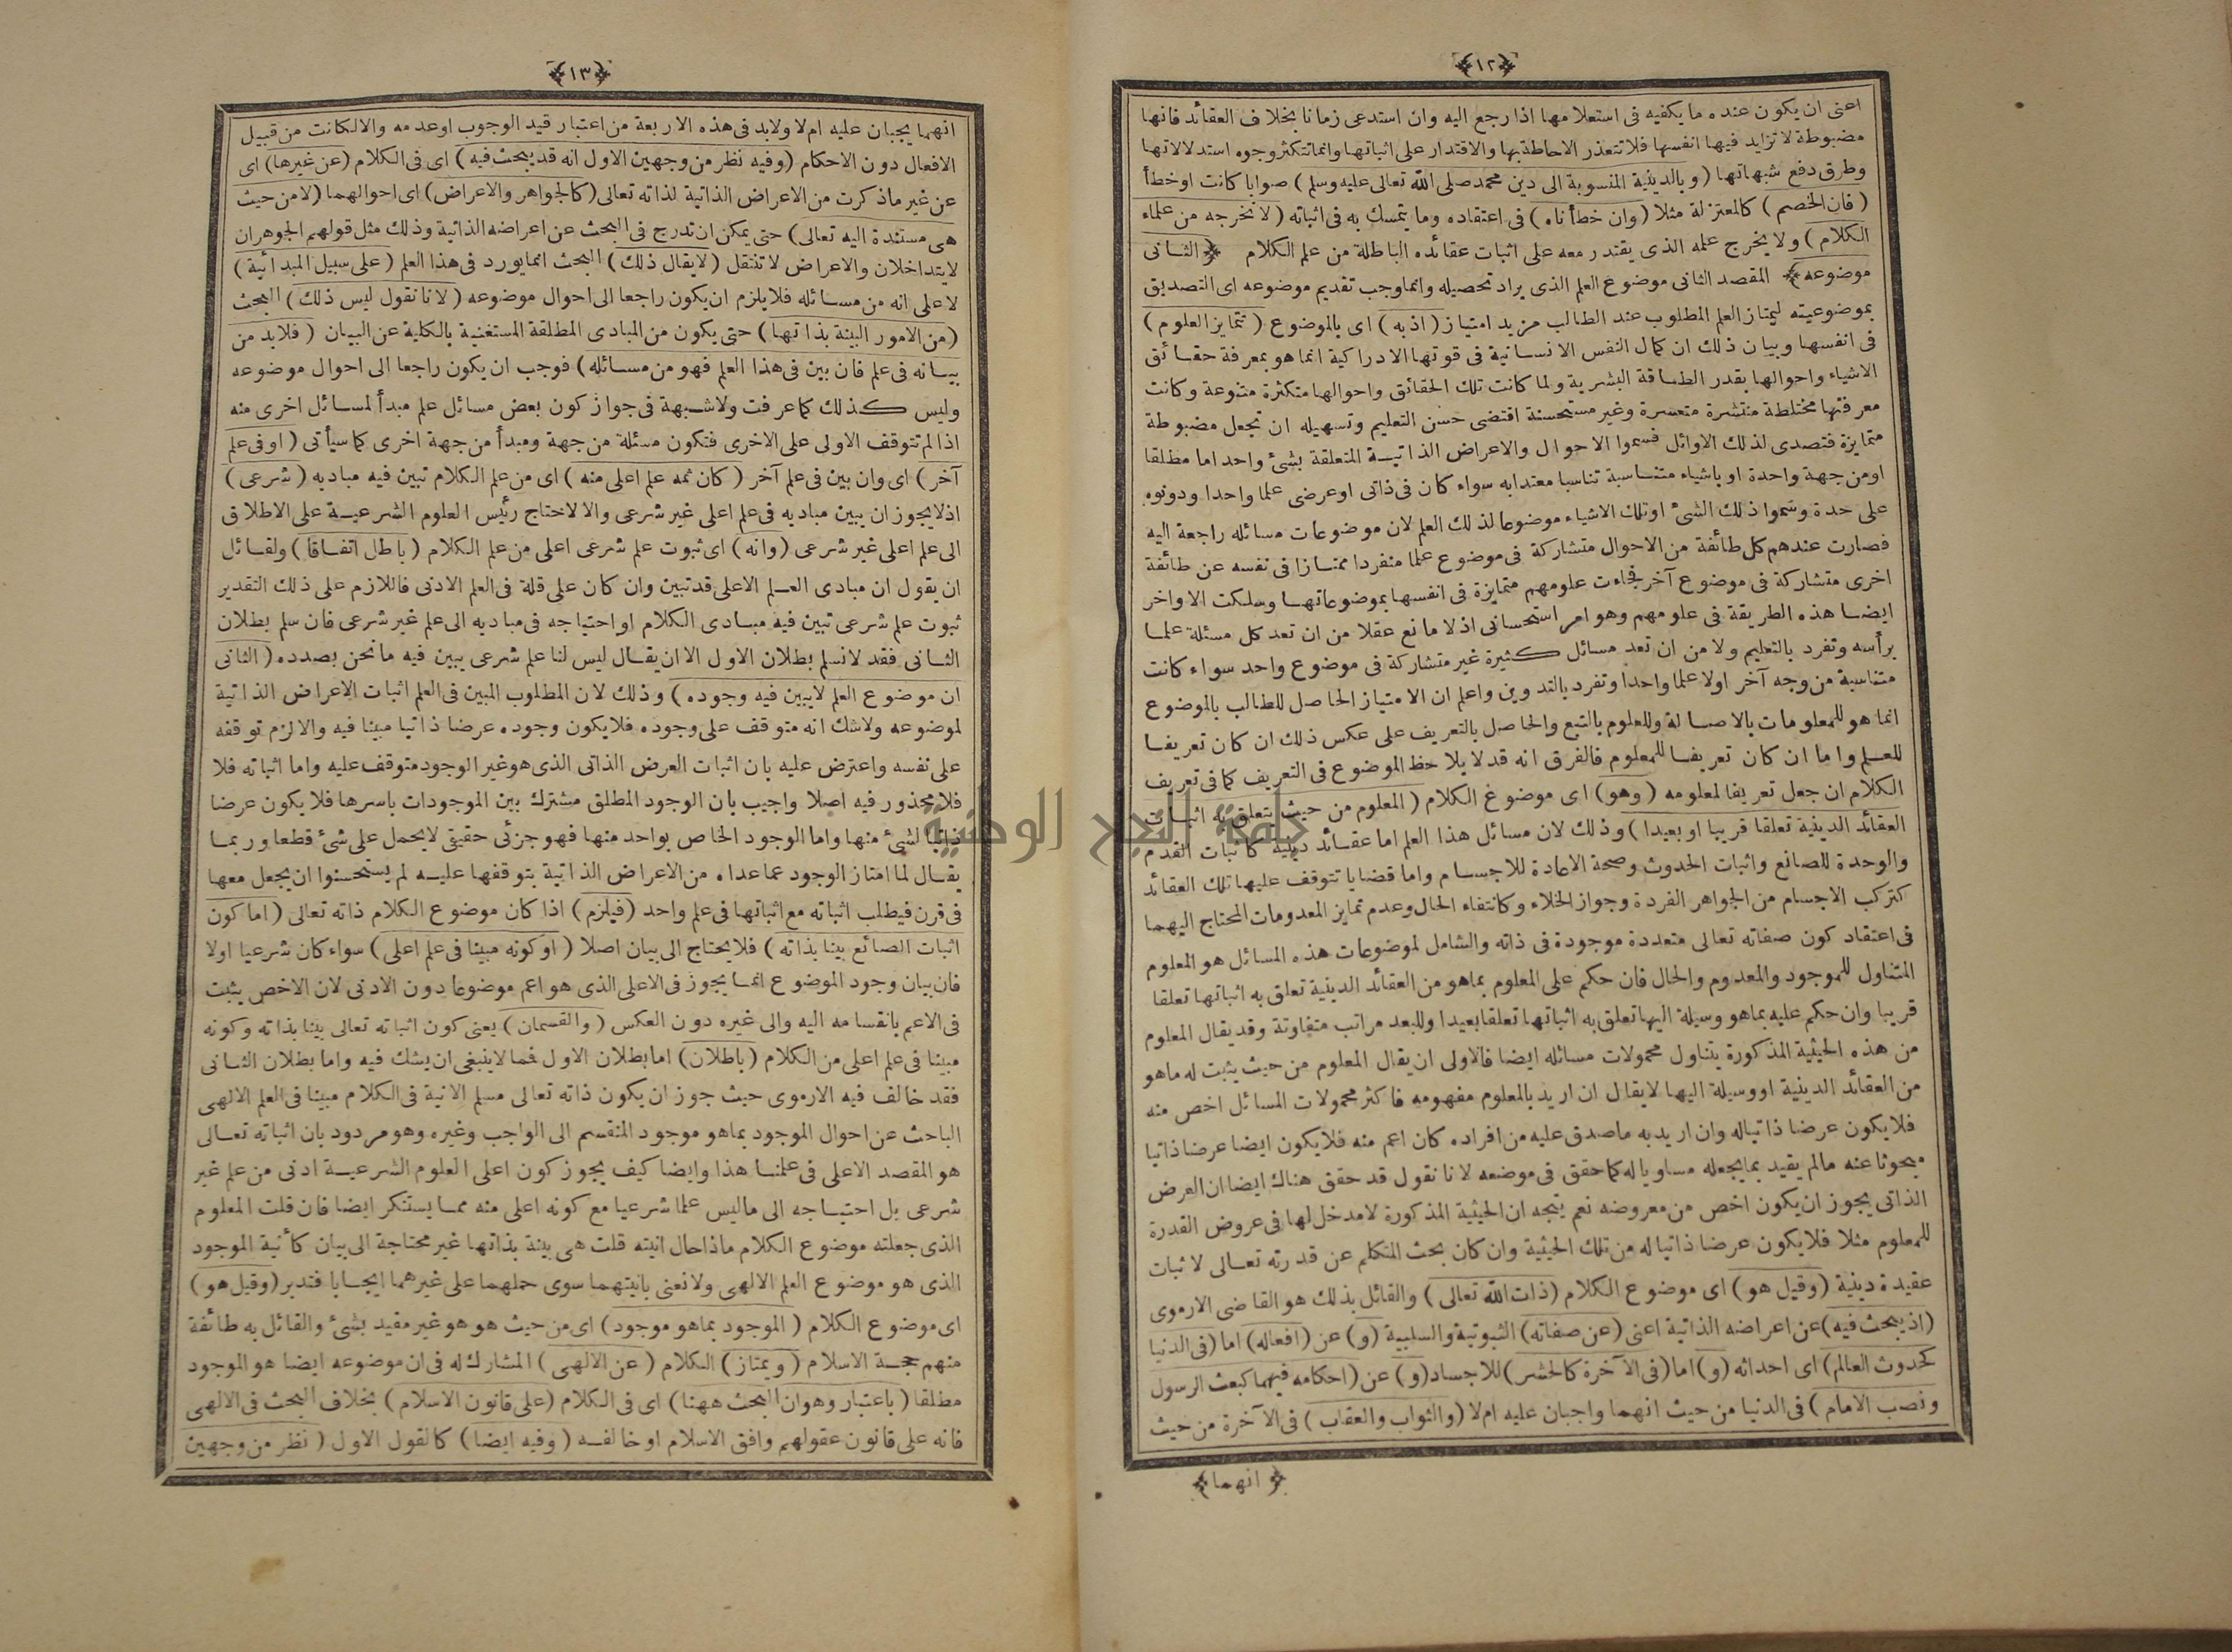 ﴿١٢﴾
اعنى ان يكون عنده ما يكفيه فى استعلامها اذا رجع اليه وان استدعى زمانا بخلاف العقائد فانها
مضبوطة لا تزايد فيها انفسها فلا تتعذر الاحاطة بها والاقتدار على اثباتها وانما تتكثر وجوه استدلالاتها
وطرق دفع شبهاتها (وبالدينية المنسوبة الى دين محمد صلى الله تعالى عليه وسلم) صوابا كانت او خطأ
(فان الخصم) كالمعتزلة مثلا (وان خطأناه) فى اعتقاده وما يتمسك به فى اثباته (لا نخرجه من علماء
الكلام) ولا يخرج علمه الذى يقتدر معه على اثبات عقائده الباطلة من علم الكلام ﴿الثانى
موضوعه﴾ المقصد الثانى موضوع العلم الذى يراد تحصيله وانما وجب تقديم موضوعه اى التصديق
بموضوعيته ليمتاز العلم المطلوب عند الطالب مزيد امتياز (اذ به) اى بالموضوع (تتمايز العلوم)
فى انفسها وبيان ذلك ان كمال النفس الانسانية فى قوتها الادراكية انما هو بمعرفة حقائق
الاشياء واحوالها بقدر الطاقة البشرية ولما كانت تلك الحقائق واحوالها متكثرة متنوعة وكانت
معرفتها مختلطة منتشرة متعسرة وغير مستحسنة اقتضى حسن التعليم وتسهيله ان تجعل مضبوطة
متمايزة فتصدى لذلك الاوائل فسموا الاحوال والاعراض الذاتية المتعلقة بشئ واحد اما مطلقا
او من جهة واحدة او باشياء متناسبة تناسبا معتدا به سواء كان فى ذاتى او عرضى علما واحدا ودونوه
على حدة وسموا ذلك الشئ او تلك الاشياء موضوعا لذلك العلم لان موضوعات مسائله راجعة اليه
فصارت عندهم كل طائفة من الاحوال متشاركة فى موضوع علما منفردا ممتازا فى نفسه عن طائفة
اخرى متشاركة فى موضوع آخر فجاءت علومهم متمايزة فى انفسها بموضوعاتها وسلكت الاواخر
ايضا هذه الطريقة فى علومهم وهو امر استحسانى اذ لا مانع عقلا من ان تعد كل مسئلة علما
برأسه وتفرد بالتعليم ولا من ان تعد مسائل كثيرة غير متشاركة فى موضوع واحد سواء كانت
متناسبة من وجه آخر اولا علما واحدا وتفرد بالتدوين واعلم ان الامتياز الحاصل للطالب بالموضوع
انما هو للمعلومات بالاصالة وللعلوم بالتبع والحاصل بالتعريف على عكس ذلك ان كان تعريفا
للعلم واما ان كان تعريفا للمعلوم فالفرق انه قد لا يلاحظ الموضوع فى التعريف كما فى تعريف
الكلام ان جعل تعريفا لمعلومه (وهو) اى موضوع الكلام (المعلوم من حيث يتعلق به اثبات
العقائد الدينية تعلقا قريبا او بعيدا) وذلك لان مسائل هذا العلم اما عقائد دينية كاثبات القدم
والوحدة للصانع واثبات الحدوث وصحة الاعادة للاجسام واما قضايا تتوقف عليها تلك العقائد
كتركب الاجسام من الجواهر الفردة وجواز الخلاء وكانتفاء الحال وعدم تمايز المعدومات المحتاج اليهما
فى اعتقاد كون صفاته تعالى متعددة موجودة فى ذاته والشامل لموضوعات هذه المسائل هو المعلوم
المتناول للموجود والمعدوم والحال فان حكم على المعلوم بما هو من العقائد الدينية تعلق به اثباتها تعلقا
قريبا وان حكم عليه بما هو وسيلة اليها تعلق به اثباتها تعلقا بعيدا وللبعد مراتب متفاوتة وقد يقال المعلوم
من هذه الحيثية المذكورة يتناول محمولات مسائله ايضا فالاولى ان يقال المعلوم من حيث يثبت له ما هو
من العقائد الدينية او وسيلة اليها لا يقال ان اريد بالمعلوم مفهومه فاكثر محمولات المسائل اخص منه
فلا يكون عرضا ذاتيا له وان اريد به ما صدق عليه من افراده كان اعم منه فلا يكون ايضا عرضا ذاتيا
مبحوثا عنه ما لم يقيد بما يجعله مساويا له كما حقق فى موضعه لانا نقول قد حقق هناك ايضا ان العرض
الذاتى يجوز ان يكون اخص من معروضه نعم يتجه ان الحيثية المذكورة لا مدخل لها فى عروض القدرة
للمعلوم مثلا فلا يكون عرضا ذاتيا له من تلك الحيثية وان كان بحث المتكلم عن قدرته تعالى لاثبات
عقيدة دينية (وقيل هو) اى موضوع الكلام (ذات الله تعالى) والقائل بذلك هو القاضى الارموى
(اذ يبحث فيه) عن اعراضه الذاتية اعنى (عن صفاته) الثبوتية والسلبية (و) عن (افعاله) اما (فى الدنيا
كحدوث العالم) اى احداثه (و) اما (فى الآخرة كالحشر) للاجساد (و) عن (احكامه فيهما كبعث الرسول
ونصب الامام) فى الدنيا من حيث انهما واجبان عليه ام لا (والثواب والعقاب) فى الآخرة من حيث
﴿انهما﴾
﴿١٣﴾
انهما يجبان عليه ام لا ولابد فى هذه الاربعة من اعتبار قيد الوجوب او عدمه والا لكانت من قبيل
الافعال دون الاحكام (وفيه نظر من وجهين الاول انه قد يبحث فيه) اى فى الكلام (عن غيرها) اى
عن غير ما ذكرت من الاعراض الذاتية لذاته تعالى (كالجواهر والاعراض) اى احوالهما (لا من حيث
هى مستندة اليه تعالى) حتى يمكن ان تدرج فى البحث عن اعراضه الذاتية وذلك مثل قولهم الجوهران
لا يتداخلان والاعراض لا تنتقل (لا يقال ذلك) البحث انما يورد فى هذا العلم (على سبيل المبدائية)
لا على انه من مسائله فلا يلزم ان يكون راجعا الى احوال موضوعه (لانا نقول ليس ذلك) البحث
(من الامور البينة بذاتها) حتى يكون من المبادى المطلقة المستغنية بالكلية عن البيان (فلا بد من
بيانه فى علم فان بين فى هذا العلم فهو من مسائله) فوجب ان يكون راجعا الى احوال موضوعه
وليس كذلك كما عرفت ولا شبهة فى جواز كون بعض مسائل علم مبدأ لمسائل اخرى منه
اذا لم تتوقف الاولى على الاخرى فتكون مسئلة من جهة ومبدأ من جهة اخرى كما سيأتى (او فى علم
آخر) اى وان بين فى علم آخر (كان ثمه علم اعلى منه) اى من علم الكلام تبين فيه مباديه (شرعى)
اذ لا يجوز ان يبين مباديه فى علم اعلى غير شرعى والا لاحتاج رئيس العلوم الشرعية على الاطلاق
الى علم اعلى غير شرعى (وانه) اى ثبوت علم شرعى اعلى من علم الكلام (باطل اتفاقا) ولقائل
ان يقول ان مبادى العلم الاعلى قد تبين وان كان على قلة فى العلم الادنى فاللازم على ذلك التقدير
ثبوت علم شرعى تبين فيه مبادى الكلام او احتياجه فى مباديه الى علم غير شرعى فان سلم بطلان
الثانى فقد لا نسلم بطلان الاول الا ان يقال ليس لنا علم شرعى يبين فيه ما نحن بصدده (الثانى
ان موضوع العلم لا يبين فيه وجوده) وذلك لان المطلوب المبين فى العلم اثبات الاعراض الذاتية
لموضوعه ولاشك انه متوقف على وجوده فلا يكون وجوده عرضا ذاتيا مبينا فيه والا لزم توقفه
على نفسه واعترض عليه بان اثبات العرض الذاتى الذى هو غير الوجود متوقف عليه واما اثباته فلا
فلا محذور فيه اصلا واجيب بان الوجود المطلق مشترك بين الموجودات باسرها فلا يكون عرضا
ذاتيا لشئ منها واما الوجود الخاص بواحد منها فهو جزئى حقيقى لا يحمل على شئ قطعا وربما
يقال لما امتاز الوجود عما عداه من الاعراض الذاتية بتوقفها عليه لم يستحسنوا ان يجعل معها
فى قرن فيطلب اثباته مع اثباتها فى علم واحد (فيلزم) اذا كان موضوع الكلام ذاته تعالى (اما كون
اثبات الصانع بينا بذاته) فلا يحتاج الى بيان اصلا (او كونه مبينا فى علم اعلى) سواء كان شرعيا اولا
فان بيان وجود الموضوع انما يجوز فى الاعلى الذى هو اعم موضوعا دون الادنى لان الاخص يثبت
فى الاعم بانقسامه اليه والى غيره دون العكس (والقسمان) يعنى كون اثباته تعالى بينا بذاته وكونه
مبينا فى علم اعلى من الكلام (باطلان) اما بطلان الاول فمما لا ينبغى ان يشك فيه واما بطلان الثانى
فقد خالف فيه الارموى حيث جوز ان يكون ذاته تعالى مسلم الانية فى الكلام مبينا فى العلم الالهى
الباحث عن احوال الموجود بما هو موجود المنقسم الى الواجب وغيره وهو مردود بان اثباته تعالى
هو المقصد الاعلى فى علمنا هذا وايضا كيف يجوز كون اعلى العلوم الشرعية ادنى من علم غير
شرعى بل احتياجه الى ما ليس علما شرعيا مع كونه اعلى منه مما يستنكر ايضا فان قلت المعلوم
الذى جعلته موضوع الكلام ماذا حال انيته قلت هى بينة بذاتها غير محتاجة الى بيان كأنية الموجود
الذى هو موضوع العلم الالهى ولا نعنى بانيتهما سوى حملهما على غيرهما ايجابا فتدبر (وقيل هو)
اى موضوع الكلام (الموجود بما هو موجود) اى من حيث هو هو غير مقيد بشئ والقائل به طائفة
منهم حجة الاسلام (ويمتاز) الكلام (عن الالهى) المشارك له فى ان موضوعه ايضا هو الموجود
مطلقا (باعتبار وهو ان البحث ههنا) اى فى الكلام (على قانون الاسلام) بخلاف البحث فى الالهى
فانه على قانون عقولهم وافق الاسلام او خالفه (وفيه ايضا) كالقول الاول (نظر من وجهين
جامعة النجاح الوطنية